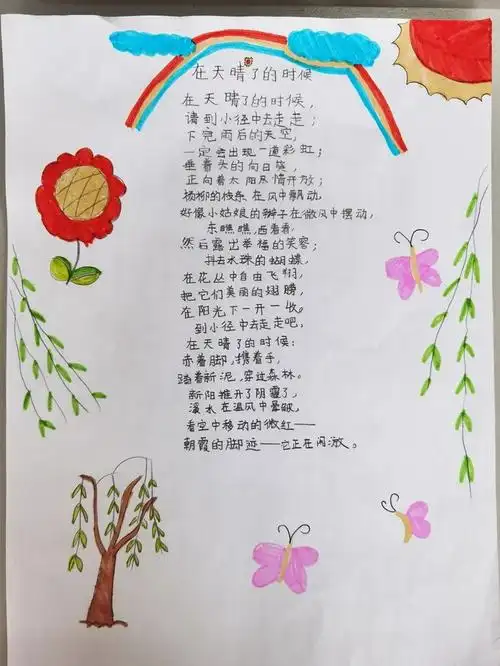 在天晴了的时候
在天晴了的时候，
请到小径中去走走；
下完雨后的天空，
一定会出现一道彩虹；
垂着头的向日葵，
正向着太阳尽情开放；
杨柳的枝条在风中飘动，
好像小姑娘的辫子在微风中摆动，
东瞧瞧，西看看，
然后露出幸福的笑容；
抖去水珠的蝴蝶，
在花丛中自由飞翔，
把它们美丽的翅膀，
在阳光下一开一收。
到小径中去走走吧，
在天晴了的时候：
赤着脚，携着手，
踏着新泥，穿过森林。
新阳推开了阴霾了，
溪水在温风中晕皱，
看空中移动的微红——
朝霞的脚迹——它正在闲游。